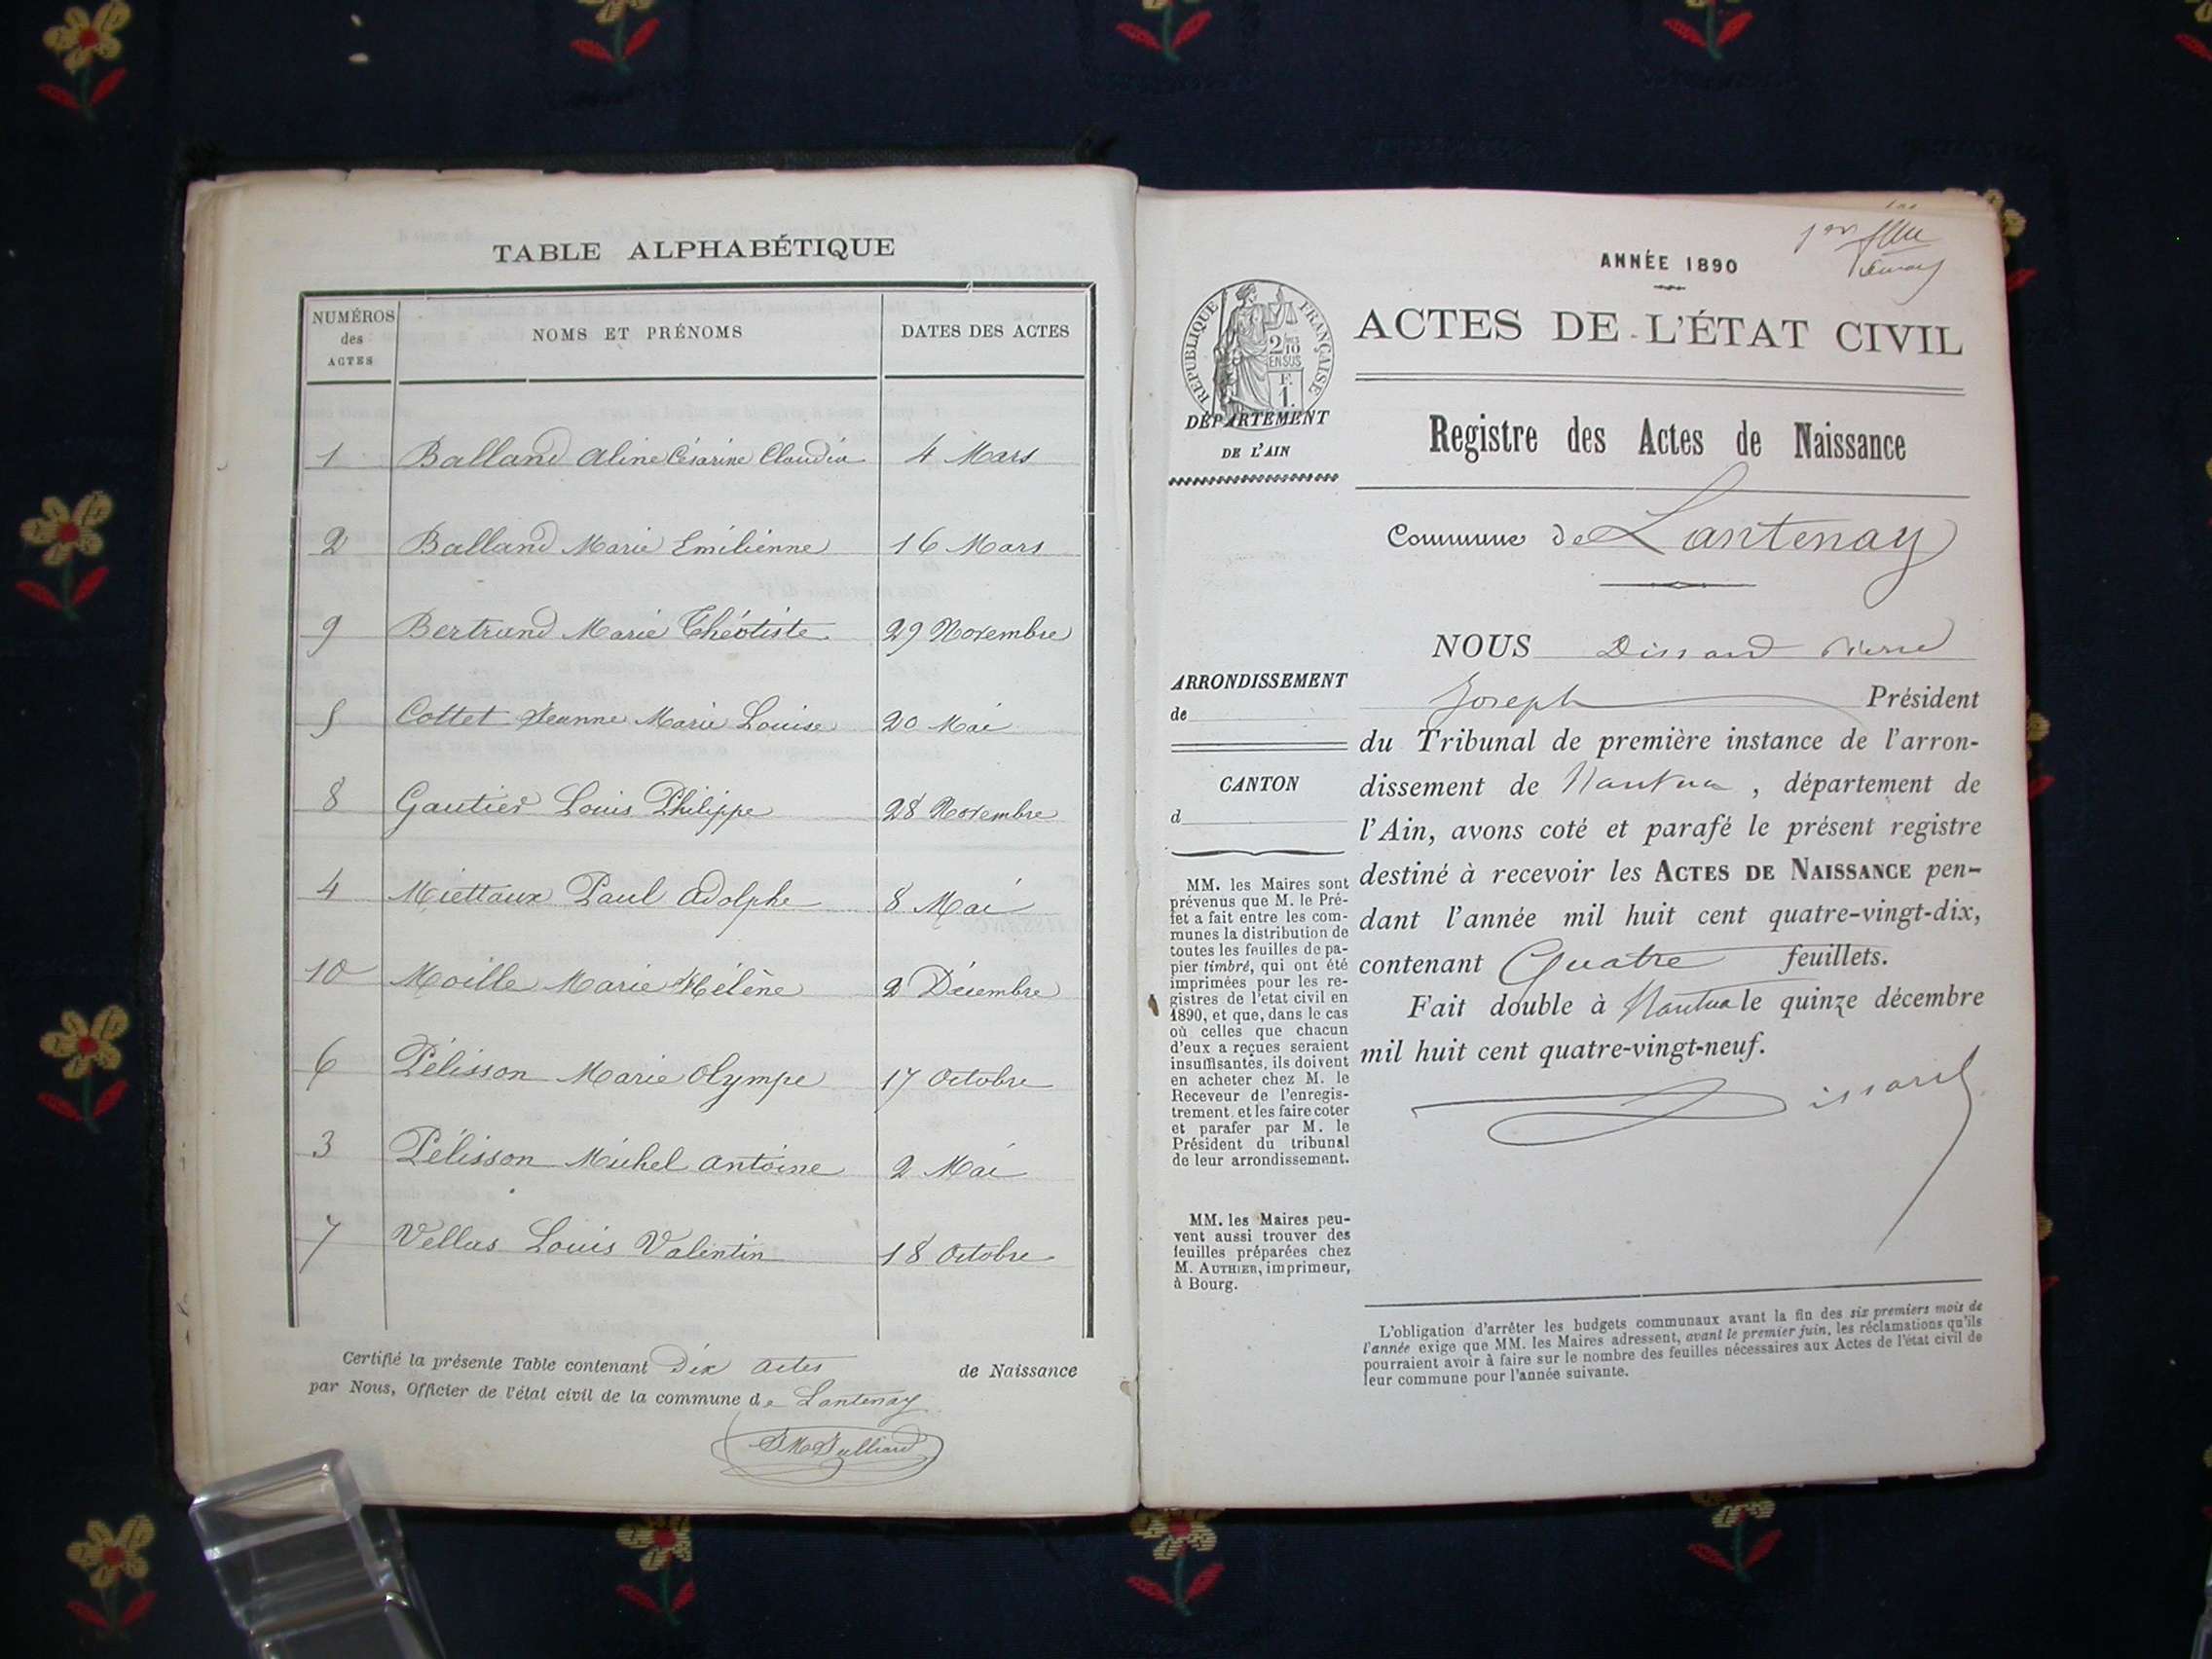 TABLE ALPHABÉTIQUE
NUMÉROS des ACTES NOMS ET PRÉNOMS DATES DES ACTES
1 Balland Aline Césarine Claudia 4 Mars
2 Balland Marie Emilienne 16 Mars
9 Bertrand Marie Théotiste 29 Novembre
5 Cottet Jeanne Marie Louise 20 Mai
8 Gautier Louis Philippe 28 Novembre
4 Miettaux Paul Adolphe 8 Mai
10 Moille Marie Hélène 2 Décembre
6 Pélisson Marie Olympe 17 Octobre
3 Pélisson Michel Antoine 2 Mai
7 Vellus Louis Valentin 18 Octobre
Certifié la présente Table contenant Dix actes de Naissance
par Nous, Officier de l'état civil de la commune de Lantenay
ANNÉE 1890
RÉPUBLIQUE FRANÇAISE
2/10
EN SUS
F.
1.
DÉPARTEMENT
DE L'AIN
ACTES DE L'ÉTAT CIVIL
Registre des Actes de Naissance
Commune de Lantenay
NOUS Dissard Pierre
Joseph Président
du Tribunal de première instance de l'arron-
dissement de Nantua, département de
l'Ain, avons coté et parafé le présent registre
destiné à recevoir les ACTES DE NAISSANCE pen-
dant l'année mil huit cent quatre-vingt-dix,
contenant Quatre feuillets.
Fait double à Nantua le quinze décembre
mil huit cent quatre-vingt-neuf.
Dissard
ARRONDISSEMENT
de
CANTON
d
MM. les Maires sont
prévenus que M. le Pré-
fet a fait entre les com-
munes la distribution de
toutes les feuilles de pa-
pier timbré, qui ont été
imprimées pour les re-
gistres de l'état civil en
1890, et que, dans le cas
où celles que chacun
d'eux a reçues seraient
insuffisantes, ils doivent
en acheter chez M. le
Receveur de l'enregis-
trement et les faire coter
et parafer par M. le
Président du tribunal
de leur arrondissement.
MM. les Maires peu-
vent aussi trouver des
feuilles préparées chez
M. AUTHIER, imprimeur,
à Bourg.
L'obligation d'arrêter les budgets communaux avant la fin des six premiers mois de
l'année exige que MM. les Maires adressent, avant le premier juin, les réclamations qu'ils
pourraient avoir à faire sur le nombre des feuilles nécessaires aux Actes de l'état civil de
leur commune pour l'année suivante.